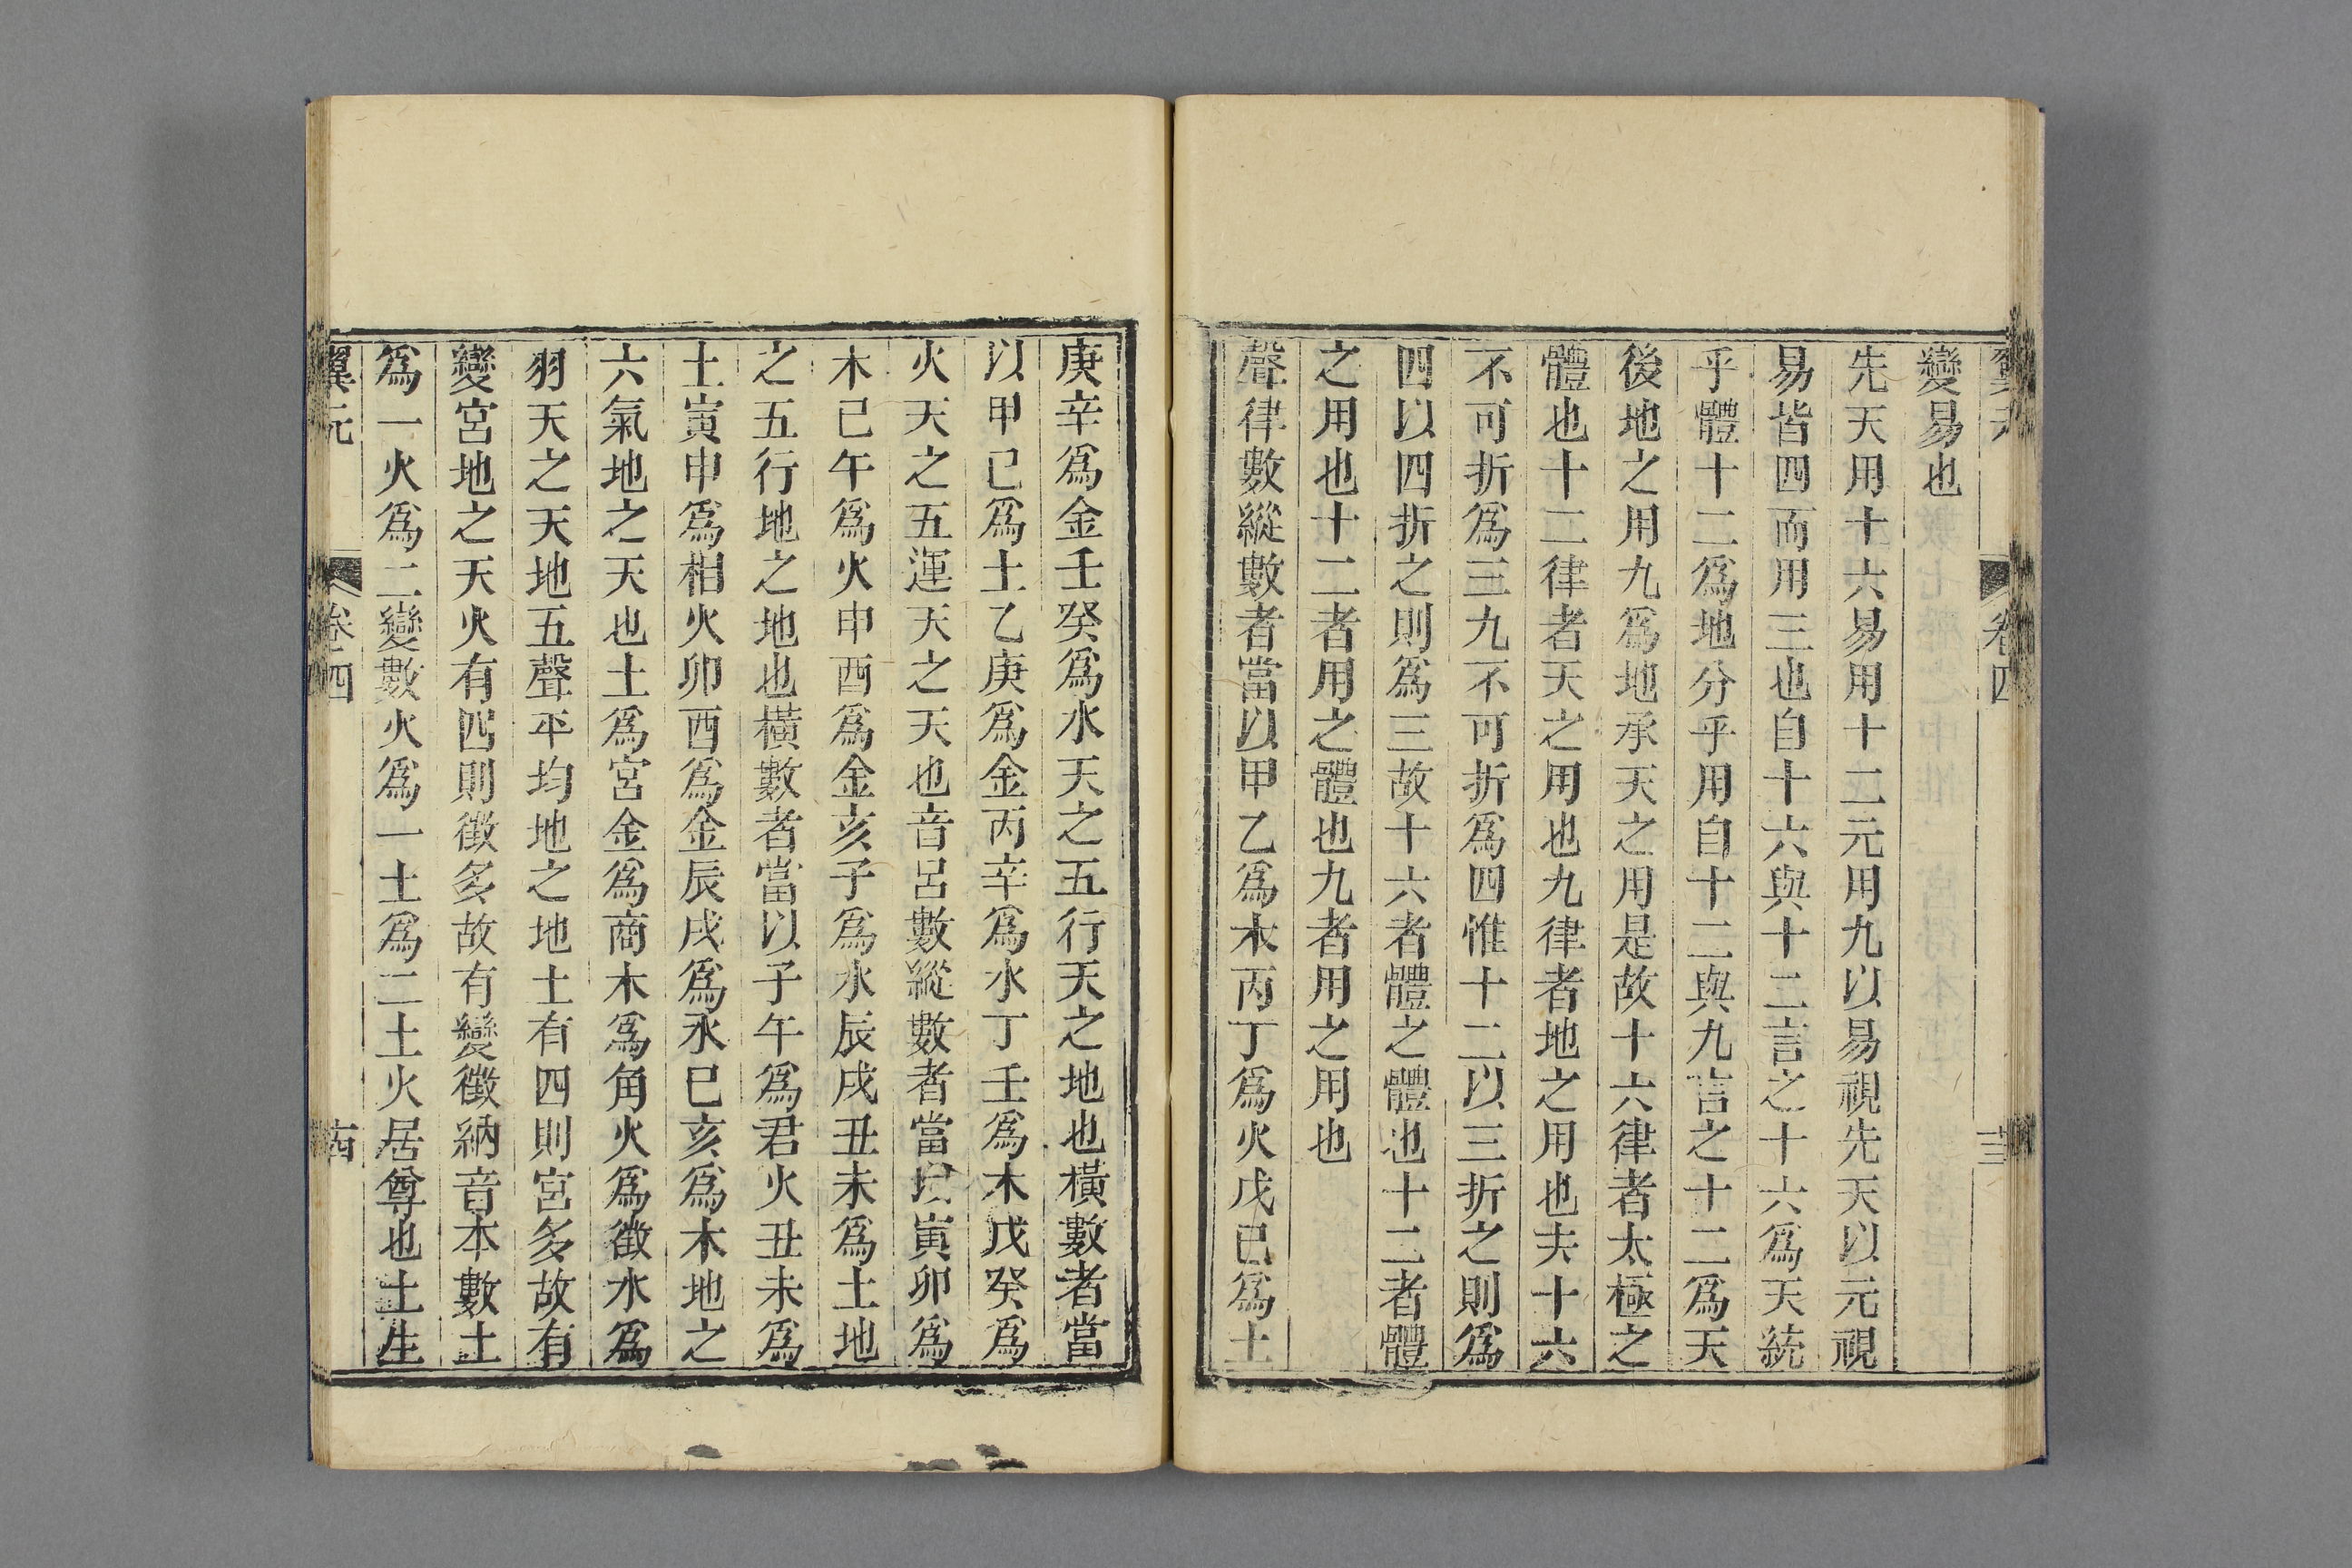 卷四
變易也
先天用十六易用十二元用九以易視先天以元視
易皆四而用三也自十六與十二言之十六爲天統
乎體十二爲地分乎用自十二與九言之十二爲天
後地之用九爲地承天之用是故十六律者太極之
體也十二律者天之用也九律者地之用也夫十六
不可折爲三九不可折爲四惟十二以三折之則爲
四以四折之則爲三故十六者體之體也十二者體
之用也十二者用之體也九者用之用也
聲律數縱數者當以甲乙爲木丙丁爲火戊已爲土
庚辛爲金壬癸爲水天之五行天之地也橫數者當
以甲已爲土乙庚爲金丙辛爲水丁壬爲木戊癸爲
火天之五運天之天也音呂數縱數者當以寅卯爲
木已午爲火申酉爲金亥子爲水辰戌丑未爲土地
之五行地之地也橫數者當以子午爲君火丑未爲
土寅申爲相火卯酉爲金辰戌爲水巳亥爲木地之
六氣地之天也土爲宮金爲商木爲角火爲徵水爲
羽天之天地五聲平均地之地土有四則宮多故有
變宮地之天火有四則徵多故有變徵納音本數土
爲一火爲二變數火爲一土爲二土火居尊也土生
翼元 卷四